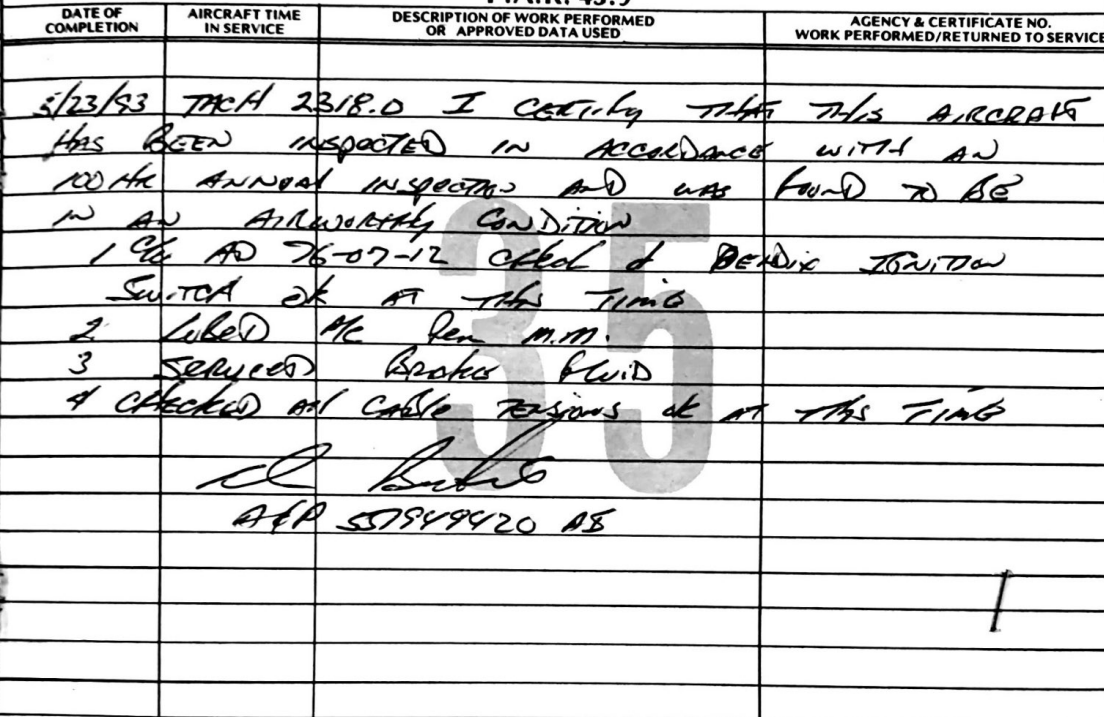 F.A.R. 43.9
DATE OF COMPLETION
AIRCRAFT TIME IN SERVICE
DESCRIPTION OF WORK PERFORMED OR APPROVED DATA USED
AGENCY & CERTIFICATE NO. WORK PERFORMED/RETURNED TO SERVICE
35
5/23/93 TACH 2318.0 I CERTIFY THAT THIS AIRCRAFT
HAS BEEN INSPECTED IN ACCORDANCE WITH AN
100 HR ANNUAL INSPECTION AND WAS FOUND TO BE
IN AN AIRWORTHY CONDITION
1 C/W AD 76-07-12 BENDIX IGNITION
SWITCH OK AT THIS TIME
2 LUBED A/C PER M.M.
3 SERVICED FLUID
4 CHECKED ALL CABLE TENSIONS OK AT THIS TIME
A&P 557949420